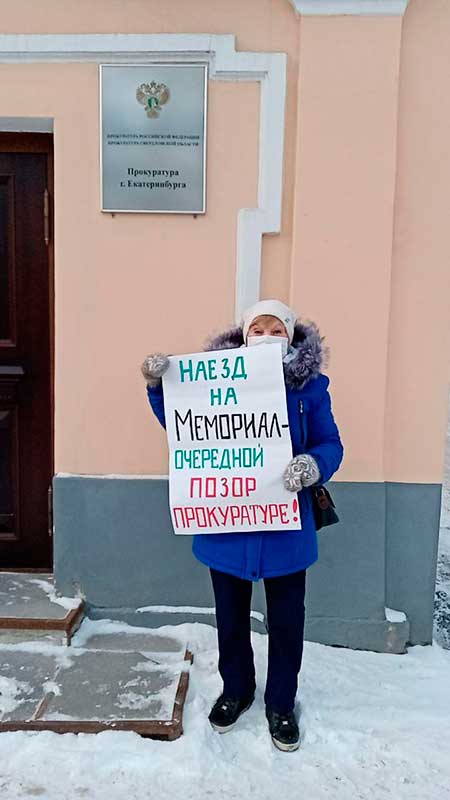 ПРОКУРАТУРА РОССИЙСКОЙ ФЕДЕРАЦИИ
ПРОКУРАТУРА СВЕРДЛОВСКОЙ ОБЛАСТИ
Прокуратура
г. Екатеринбурга
НАЕЗД
НА
МЕМОРИАЛ-
ОЧЕРЕДНОЙ
ПОЗОР
ПРОКУРАТУРЕ!